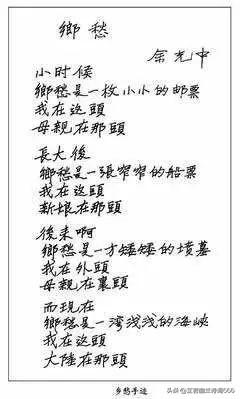 鄉愁
余光中
小时候
鄉愁是一枚小小的邮票
我在这頭
母親在那頭
長大後
鄉愁是一張窄窄的船票
我在这頭
新娘在那頭
後来啊
鄉愁是一方矮矮的墳墓
我在外頭
母親在裏頭
而现在
鄉愁是一湾浅浅的海峡
我在这頭
大陸在那頭
乡愁手迹
头条